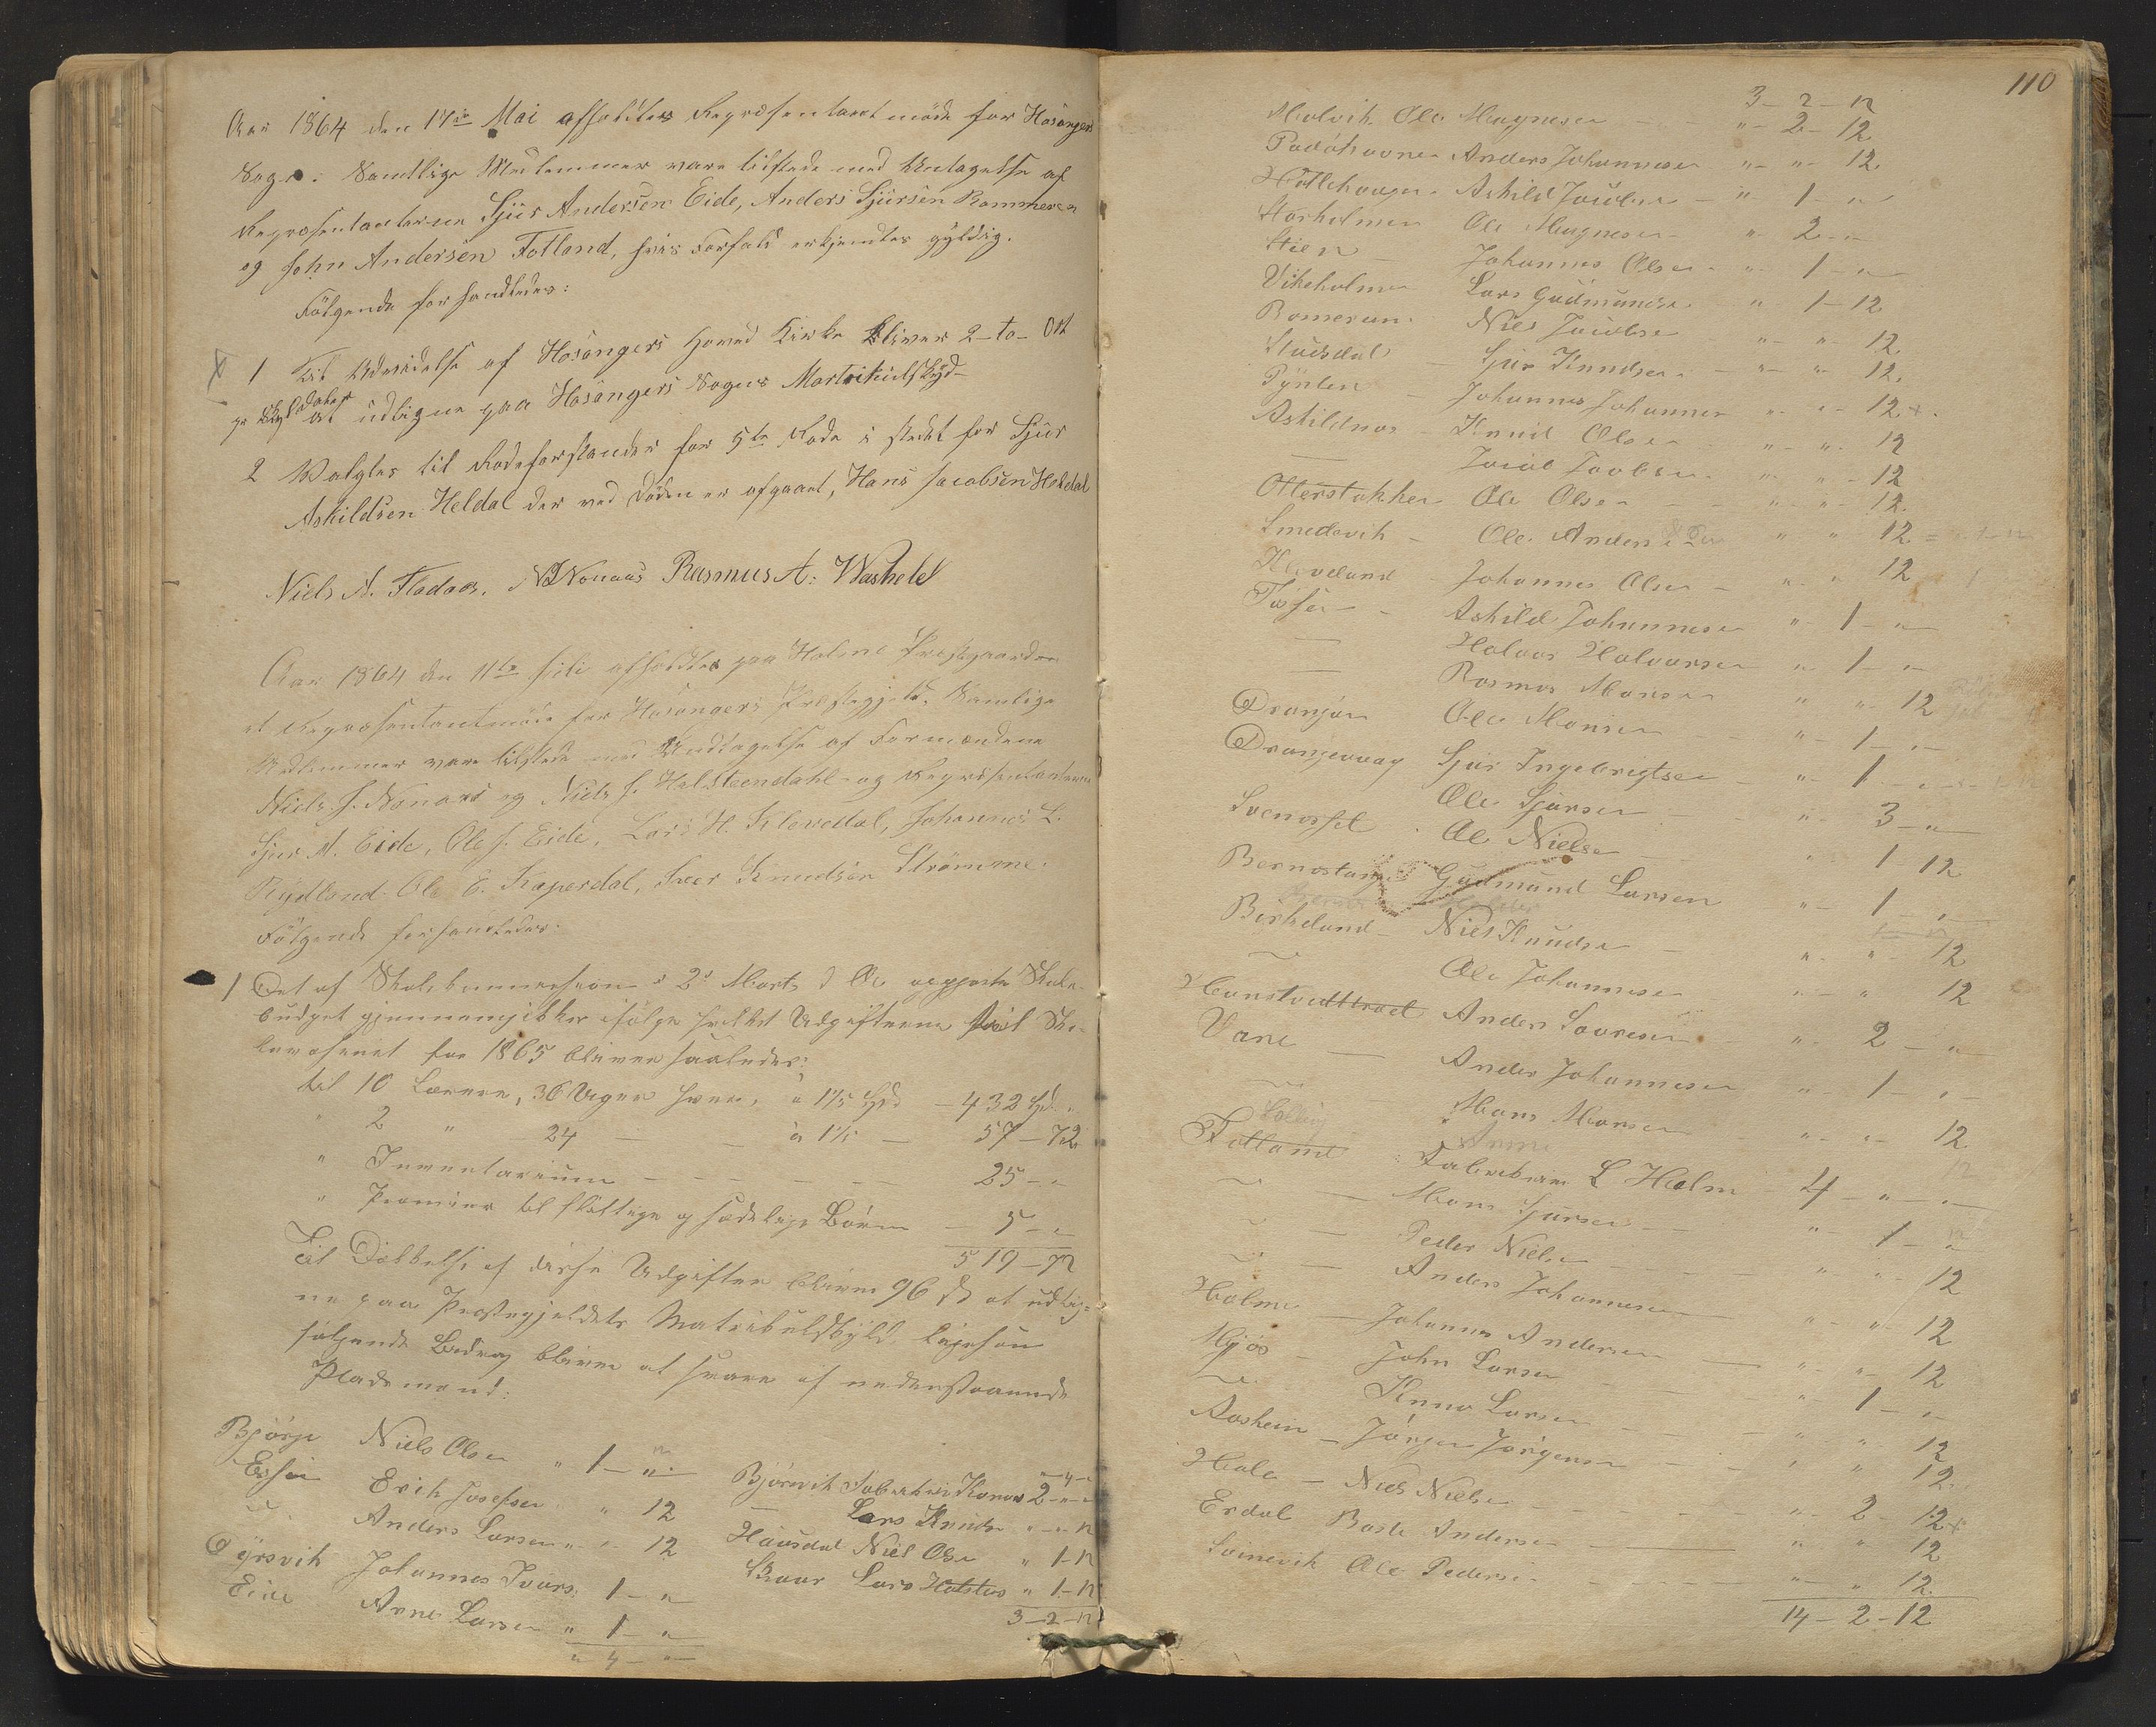 Aar 1864 den 17de Mai afholdtes Repræsentantmöde for Hosangers
Sogn. Samtlige Medlemmer vare tilstede med Undtagelse af
Repræsentanterne Sjur Andersen Eide, Anders Sjursen Rammeren
og John Andersen Fotland, hvis Forfald erkjendtes gyldig.
Fölgende forhandledes:
1 Til Udvidelse af Hosangers Hoved Kirke bliver 2 - to - Ort
pr Skylddaler at udligne paa Hosangers Sogns Martrikulskyld
2 Valgtes til Rodeforstander for 5te Rode i stedet for Sjur
Askildsen Heldal der ved Döden er afgaaet, Hans Jacobsen Heldal
Niels A. Fladaas. N J Nonaas Rasmus A. Washeld
Aar 1864 den 11te Juli afholdtes paa Holme Præstgaarden
et Repræsentantmöde for Hosangers Præstegjeld. Samtlige
Medlemmer vare tilstede med Undtagelse af Formændene
Niels J. Nonaas og Niels J. Holsteendahl og Repræsentanterne
Sjur A. Eide, Ole J. Eide, Lars H. Klevedal, Johannes L.
Rydland, Ole E. Kaperdal, Iver Knudsen Strömme.
Fölgende forhandledes:
1 Det af Skolekommissionen 2d Marts d A opgjorte Skole-
budget gjennemgikkes ifölge hvilket Udgifterne til Sko-
levæsenet for 1865 bliver saaledes:
til 10 Lærere, 36 Uger hver, a 1 1/5 Spd - 432 Spd "
" 2 " 24 - - à 1 1/5 - 57 - 72
" Inventarium - - - - - 25 - "
" Præmier til flittige og sædelige Börn - 5 - "
519 - 72
Til Dækkelse af disse Udgifter bliver 96 ß at udlig-
ne paa Præstegjeldets Matrikulskyld ligesom
fölgende Bidrag bliver at svare af nedenstaaende
Pladsmænd:
Bjørge Niels Olsen " 1 - "
Erik Josefsen " 12
Anders Larsen " " 12
Dyrsvik Johannes Ivars. 1 - "
Eide Anne Larsen " 1 - "
" 4 - "
" 4 - "
Björnvik 2 - " - "
- Lars Knuds " - " 12
Hausdal Niel Olsen " 1 - 12
Skaar Lars " 1 - 12
3 - 2 - 12
110
3 - 2 - 12
Molvik Ole Magnesen " - 2 - 12
Anders Johannesen " - " - 12
Askild Jacobsen - " 1 - "
Storholmen Ole Magnesen " 2 - "
Stien - Johannes Olsen " 1 - "
Vikeholmen Lars Gudmundsen " 1 - 12
Romeren Niels Jacobsen " - " 12
Stusdal - Sjur Knudsen - " - " 12
Pynten - Johannes Johannes " - " - 12 +
Askildnes Knud Olsen " - " 12
- Jacob Jacobsen " - " - 12
Otterstakken Ole Olsen - - " - " - 12
Smedevik - Ole Anders " " 12
Kleveland - Johannes Olsen - " - " 12
Tosser - Askild Johannesen " - 1 - "
- Halvor Halvorsen " 1 - "
- Rasmus Monsen " " 12
Dronjen Ole Monsen " - 1 - "
Dronjevaag Sjur Ingebrigtsen - " 1 - "
Ole Sjursen - " - 3 - "
Svenosset Ole Nielsen - " 1 - 12
Bernestangen Gudmund Larsen " - 1 - "
Birkeland - Niels Knudsen - " - " 12
~ Ole Johannesen " - " 12
Hanstvedttræet Anders Lavresen - " - 2 - "
Vane - Anders Johannesen " - 1 - "
~ Mons Monsen " - " - 12
Fotland L Holm 4 - " - "
~ - Mons Sjursen - " - 1 - "
~ - Peder Nielsen - - " " 12
~ - Anders Johannesen - " - " 12
Holme Johannes Andersen - " - " 12
Mjøs - John Larsen - " 1 - "
~ Knud Larsen - " " 12
Aasheim - Jörgen Jörgensen - - " " 12
Hole - Niels Nielsen - - - " - 2 - 12 +
Erdal Baste Andersen - " " 12
Svinevik Ole Pedersen - - " " 12
14 - 2 - 12